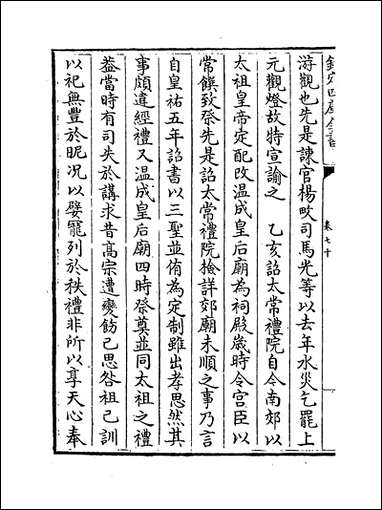 欽定四庫全書
卷七十
游觀也先是諫官楊畋司馬光等以去年水災乞罷上
元觀燈故特宣諭之　乙亥詔太常禮院自今南郊以
太祖皇帝定配改温成皇后廟為祠殿歳時令宫臣以
常饌致祭先是詔太常禮院檢詳郊廟未順之事乃言
自皇祐五年詔書以三聖並侑為定制雖出孝思然其
事頗違經禮又温成皇后廟四時祭奠並同太祖之禮
葢當時有司失於講求昔髙宗遭變飭己思咎祖己訓
以祀無豐於昵况以嬖寵列於秩禮非所以享天心奉